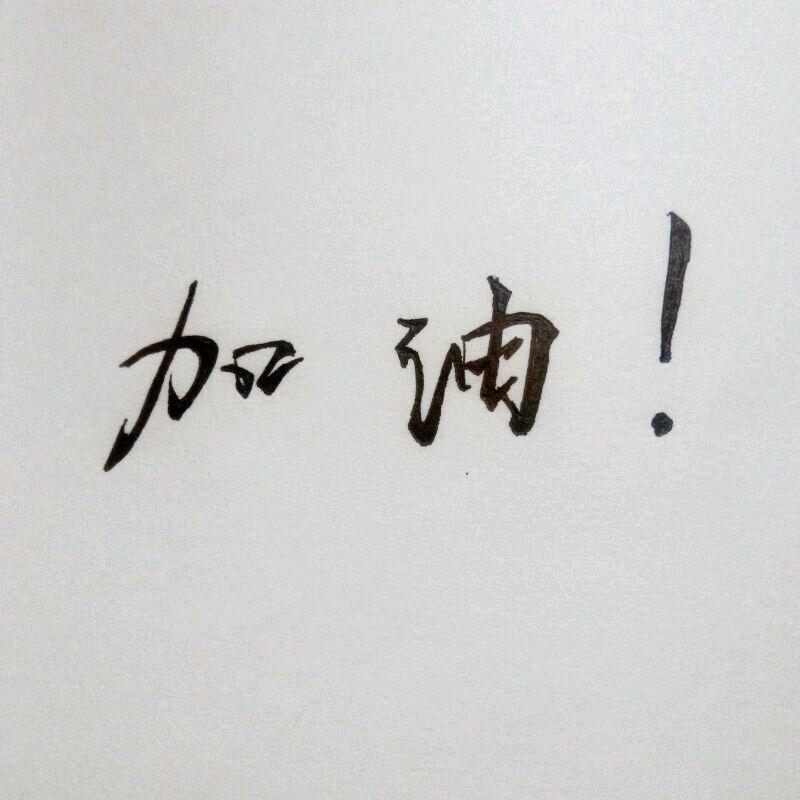 加油！